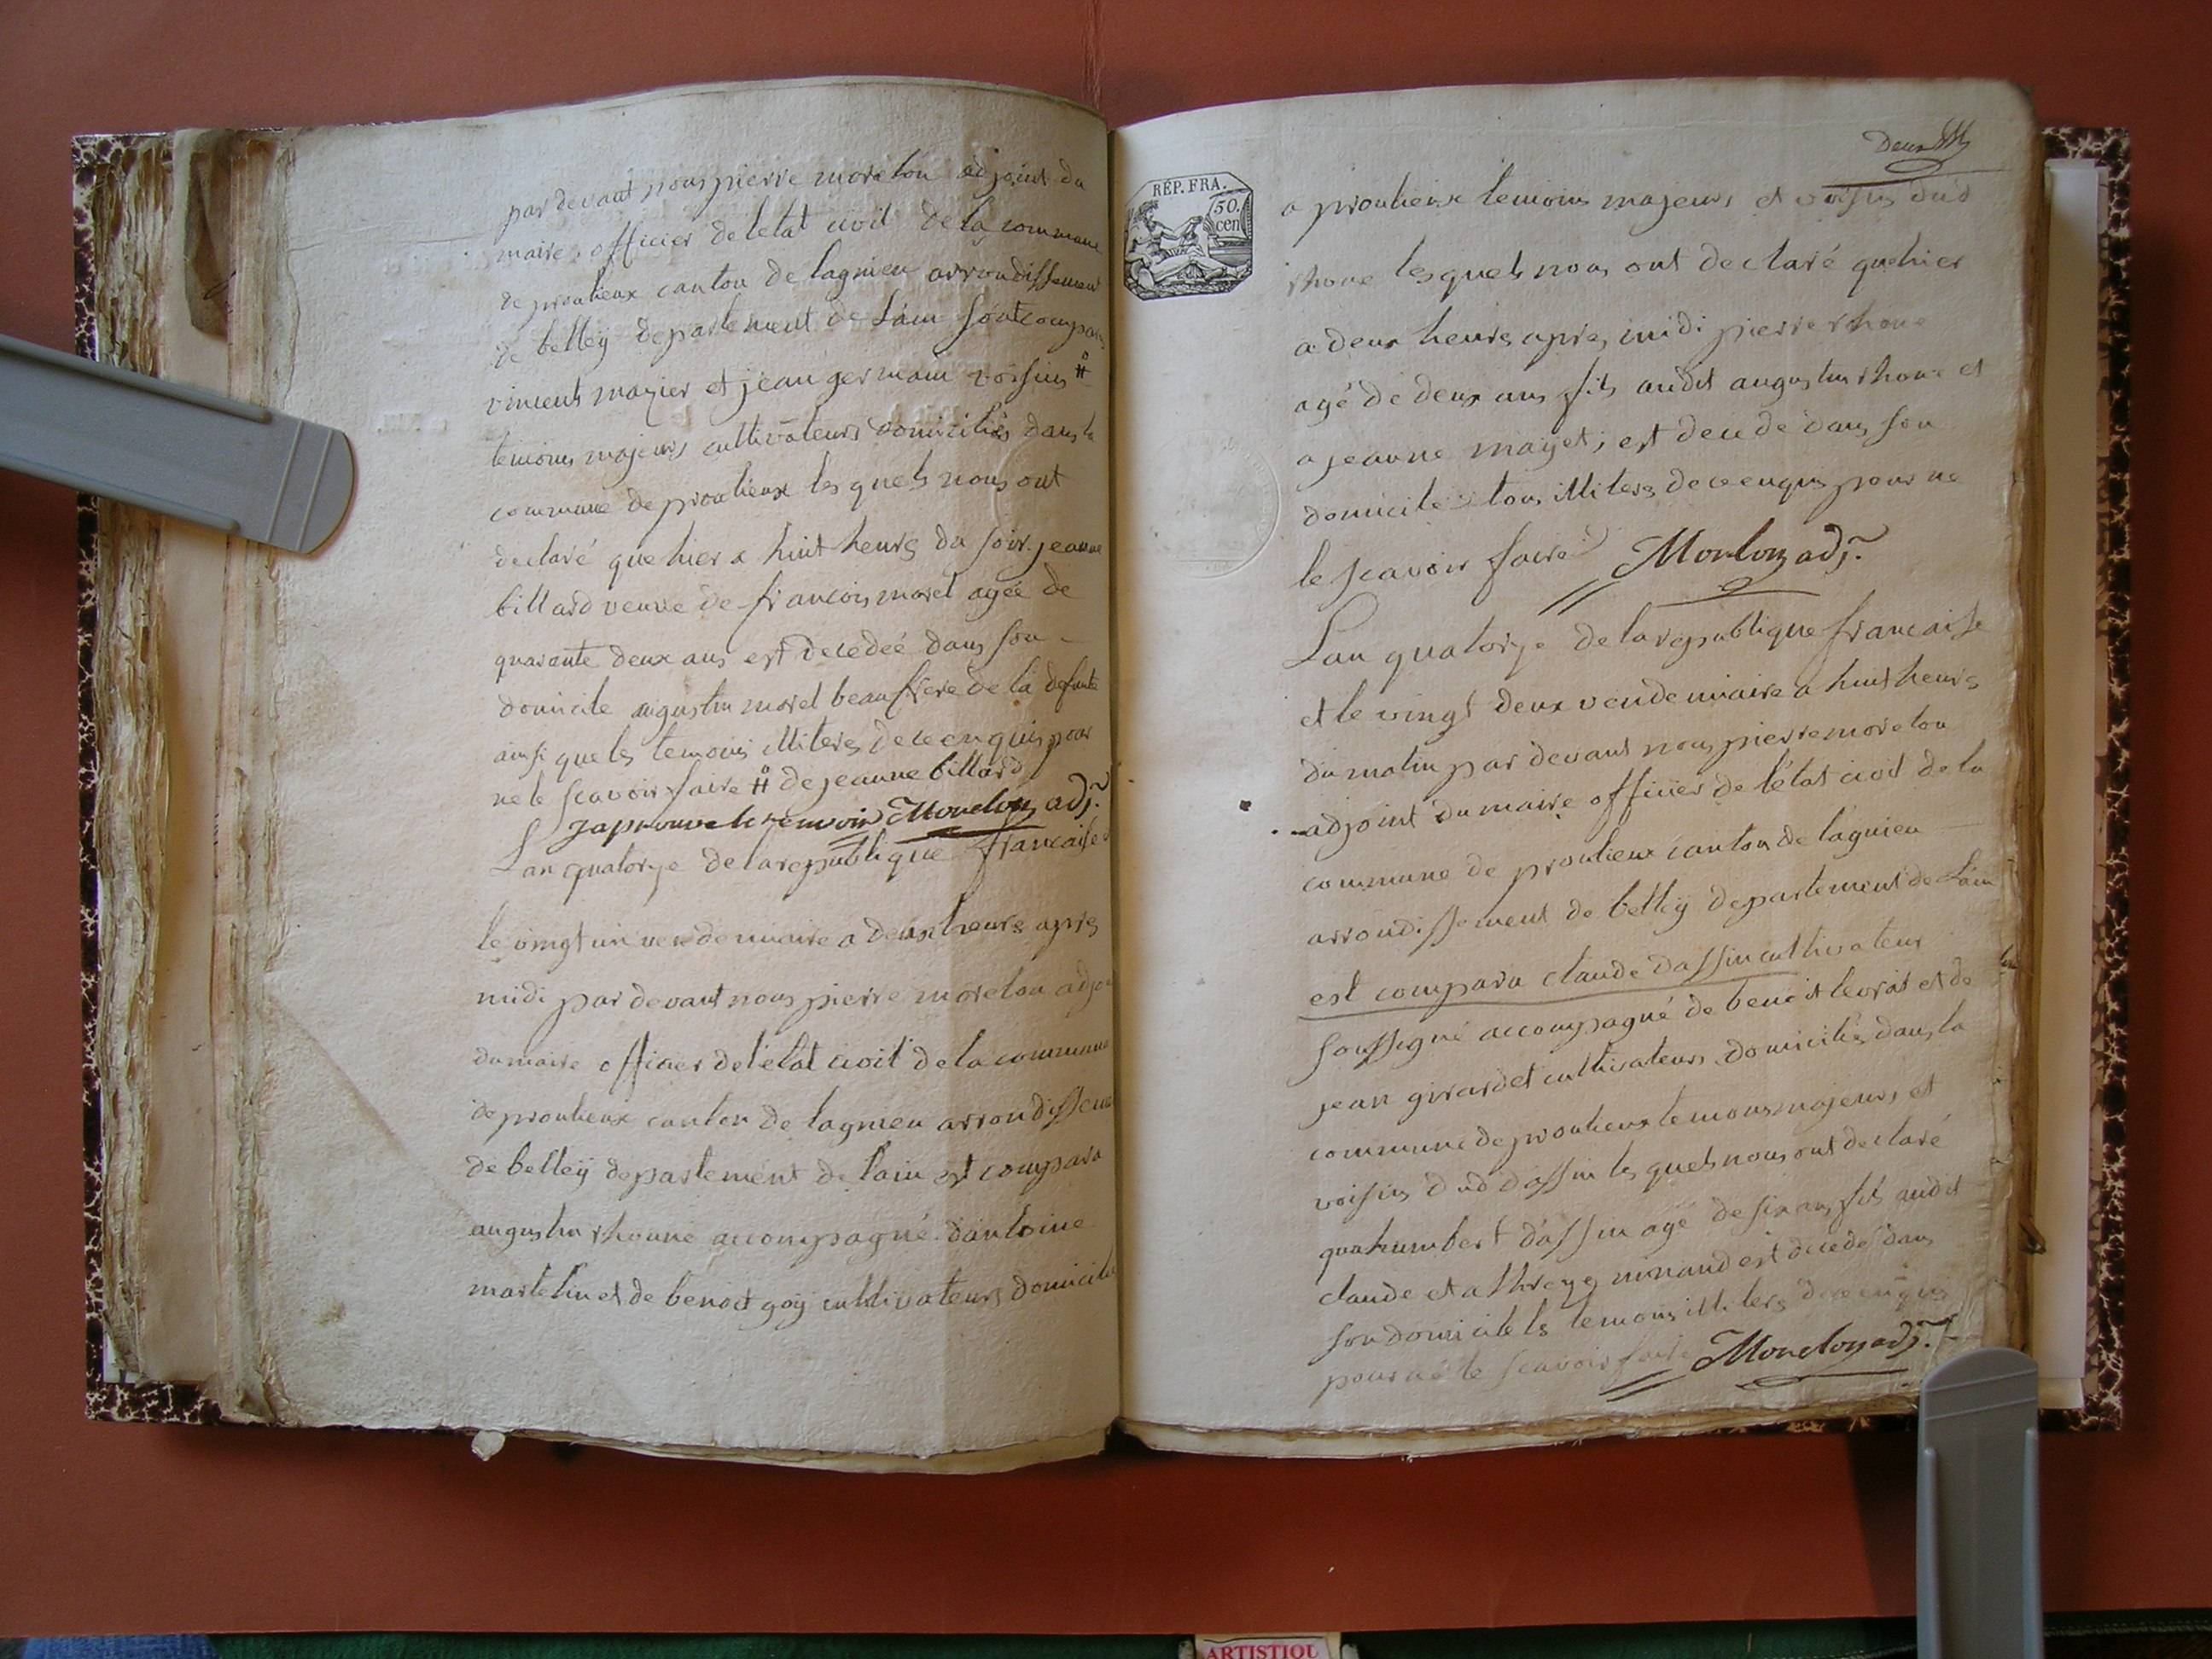 par devant nous pierre moreton adjoint du
maire officier de letat civil de la commune
de proulieux canton de lagnieu arrondissement
de belley departement de Lain sont comparus
vincent mazier et jean germain voisins #
temoins majeurs cultivateurs domiciliés dans la
commune de proulieux les quels nous ont
declaré que hier a huit heurs du soir jeanne
billard veuve de francois morel agée de
quarante deux ans est decedeé dans son
domicile augustin morel beaufrere de la defunte
ainsi que les temoins illiteres de ce enquis pour
ne le scavoir faire # de jeanne billard
Japrouve le renvoir Moreton adj.
Lan quatorze de la republique francaise
le vingt un vendemiaire a deux heurs apres
midi par devant nous pierre moreton adjoin
du maire officier de létat civil de la commune
de proulieux canton de lagnieu arrondissem
de belley departement de lain est comparu
augustin rhonne accompagné dantoine
martelin et de benoit goy cultivateurs domicilié
Deux
RÉP. FRA.
50.
cent
a proulieux temoins majeurs et voisins dud
rhone lesquels nous ont declaré quehier
a deux heurs apres midi pierre rhone
agé de deux ans fils audit augustin rhone et
a jeanne mayet, est decedé dans son
domicile tous illiteres de ce enquis pour ne
le scavoir faire Moreton adj.
Lan quatorze de la republique francaise
et le vingt deux vendemiaire a huit heurs
du matin par devant nous pierre moreton
adjoint du maire officier de létat civil de la
commune de proulieux canton de lagnieu
arrondissement de belley departement de Lain
est comparu claude dassin cultivateur
soussigné accompagné de benoit levrat et de
jean girardet cultivateurs domiciliés dans la
commune de proulieux temoins majeurs et
voisins dud dassin les quels nous ont declaré
quehumbert dassin agé de six ans fils audit
claude et a threze minand est decedé dans
son domicile ls temoins illiters de ce enquis
pour né le scavoir faire Moreton adj.
ARTISTIQU